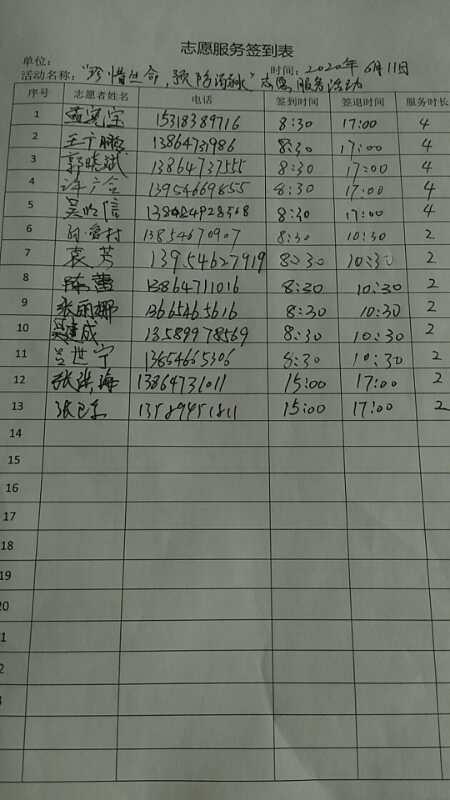 志愿服务签到表
单位:
活动名称:"珍惜生命,预防溺水"志愿服务活动 时间:2020年6月11日
序号 志愿者姓名 电话 签到时间 签退时间 服务时长
1 15318389716 8:30 17:00 4
2 王广鹏 13864731986 8:30 17:00 4
3 郭晓斌 13864737555 8:30 17:00 4
4 13954669855 8:30 17:00 4
5 8:30 17:00 4
6 13854670907 8:30 10:30 2
7 袁芳 13954627919 8:30 10:30 2
8 陈蕾 13864711016 8:30 10:30 2
9 张雨娜 13665465616 8:30 10:30 2
10 吴建成 13589978569 8:30 10:30 2
11 吕世宁 13654665306 8:30 10:30 2
12 张洪海 13864731011 15:00 17:00 2
13 13589451811 15:00 17:00 2
14
15
16
17
18
19
20
1
2